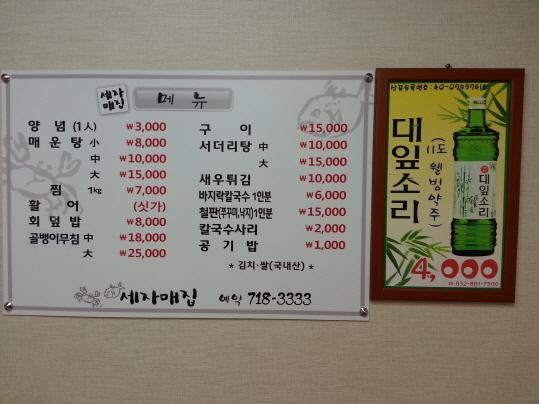 세자매집
메 뉴
양 념 (1人) ₩3,000
매 운 탕 小 ₩8,000
中 ₩10,000
大 ₩15,000
찜 1kg ₩7,000
활 어 (싯가)
회 덮 밥 ₩8,000
골뱅이무침 中 ₩18,000
大 ₩25,000
구 이 ₩15,000
서더리탕 中 ₩10,000
大 ₩15,000
새우튀김 ₩10,000
바지락칼국수 1인분 ₩6,000
철판(쭈꾸미,낙지)1인분 ₩15,000
칼국수사리 ₩2,000
공 기 밥 ₩1,000
* 김치·쌀(국내산) *
세자매집 예약 718-3333
대잎소리
(11도 웰빙약주)
대잎소리
4,000
☎ 032-881-7500